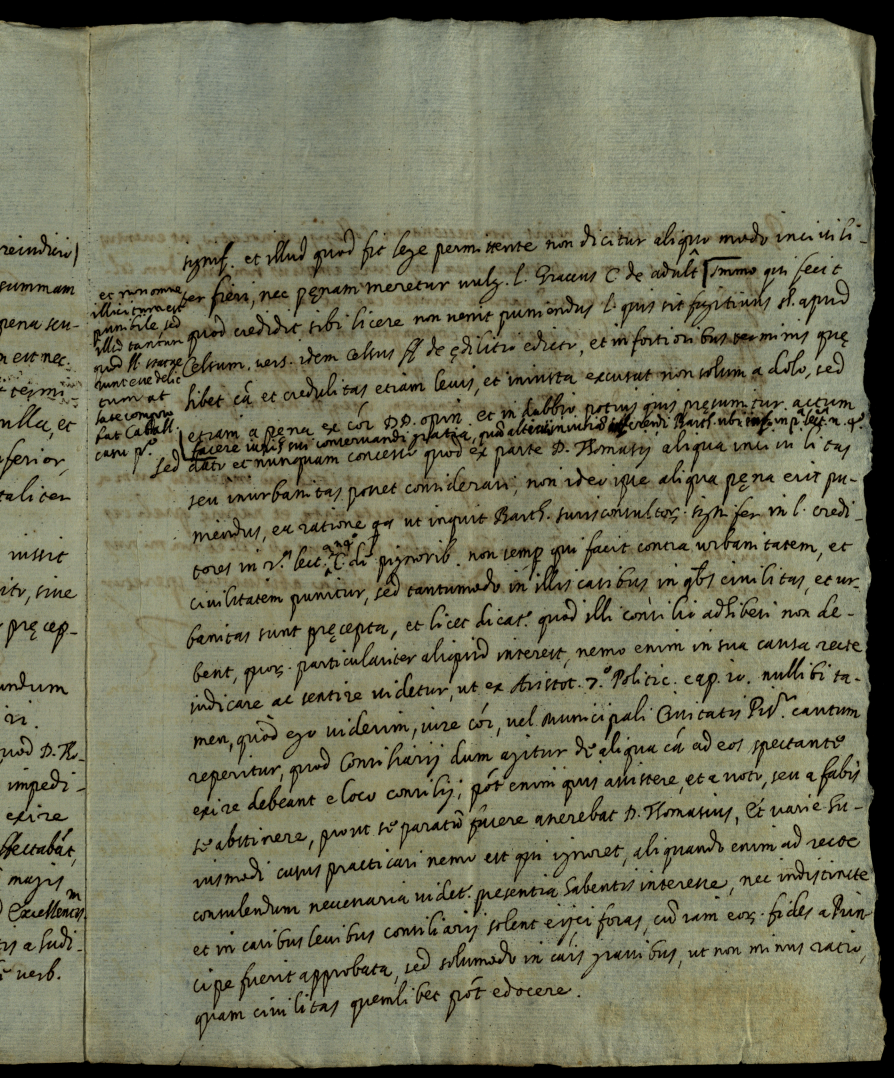 reindicio)
summam
pena scu-
n est nec.
termi-
nulla, et
nferior,
taliter
iussit
ito, siue
pręcep-
undum
iri.
quod D. Tho-
impedi-
exire
spectabat,
magis
Excellentis.m
tis a Iudi-
verb.
et non omne
illicitum est
punibile sed
illud tantum
quod ll. statue
runt esse delic
tum at
late compro
bat Caball.
casu p.o
signif. et illud quod fit lege permittente non dicitur aliquo modo inciuili-
ter fieri, nec pęnam meretur uulg. l. Gracus C de adult. Immo qui fecit
quod credidit sibi licere non uenit puniendus l. quis sit fugitiuus §. apud
Celsum. uers. idem Celsus ff de ędilitio edicto, et in fortioribus terminis quę
libet cã et credulitas etiam leuis, et iniusta excusat non solum a dolo, sed
etiam a pęna ex cõi DD. opin. et in dubbio potius quis pręsumitur actum
facere iuris sui conseruandi gratia, quod alteri iniuriã inferendi Barth. ubi in p.a lect.a n. 4.o
sed dato et nunquam concesso quod ex parte D. Thomasij aliqua inciuilitas
seu inurbanitas posset considerari, non ideo ipse aliqua pęna erit pu-
niendus, ea ratione qa ut inquit Barth. Iurisconsultor. signifer in l. credi-
tores in 2.a lect. C. de pignorib. non semp qui facit contra urbanitatem, et
ciuilitatem punitur, sed tantumodo in illis casibus in qbs ciuilitas, et ur-
banitas sunt pręcepta, et licet dicat.r quod illi consilio adhiberi non de-
bent, quor. particulariter aliquid interest, nemo enim in sua causa recte
iudicare ac sentire uidetur, ut ex Aristot. 7.o Politic. cap. 10. nullibi ta-
men, quod ego uiderim, iure cõi, uel Municipali Ciuitatis cautum
reperitur, quod Consiliarij dum agitur de aliqua cã ad eos spectante
exire debeant e loco consilij, põt enim quis assistere, et a uoto, seu a fabis
se abstinere, prout se paratũ facere asserebat D. Thomasius, Et uarie hu-
iusmodi casus practicari nemo est qui ignoret, aliquando enim ad recte
consulendum necessaria uidet.r presentia habentis interesse, nec indistincte
et in casibus leuibus consiliarij solent eijci foras, cũ iam eor. fides a Prin
cipe fuerit approbata, sed solumodo in cãis grauibus, ut non minus ratio,
quam ciuilitas quemlibet põt edocere.